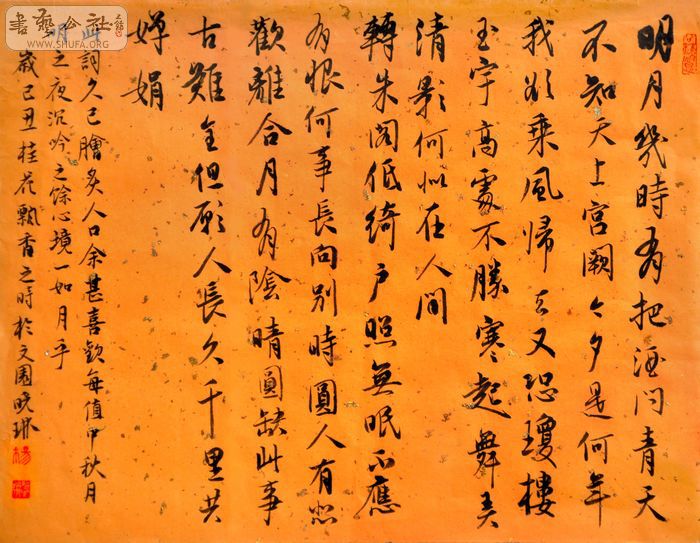 明月幾時有把酒问青天
不知天上宫闕今夕是何年
我欲乘風歸去又恐瓊樓
玉宇高處不勝寒起舞弄
清影何似在人間
轉朱阁低綺户照無眠不應
有恨何事長向别時圓人有悲
歡離合月有陰晴圓缺此事
古難全但願人長久千里共
嬋娟
此詞久已膾炙人口余甚喜歡每值中秋月
明之夜沉吟之餘心境一如月乎
歲己丑桂花飄香之時於文園晓琳
書藝公社
WWW.SHUFA.ORG